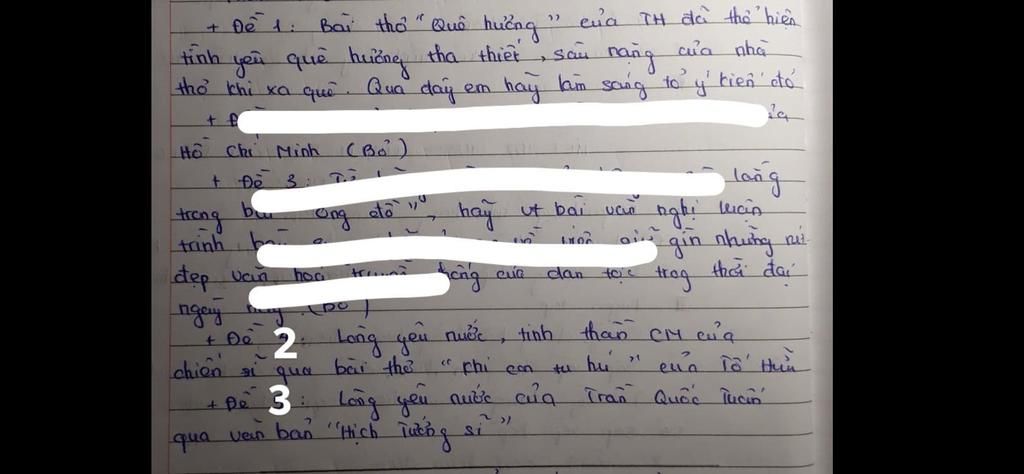 + Đề 1: Bài thơ "Quê hương" của TH đã thể hiện
tình yêu quê hương tha thiết, sâu nặng của nhà
thơ khi xa quê. Qua đây em hãy làm sáng tỏ ý kiến đó
+ Đ
Hồ Chí Minh (Bỏ)
+ Đề 3: làng
trong ông đồ", hãy vt bài văn nghị luận
trình gìn những nét
đẹp văn hoá thống của dân tộc trog thời đại
ngày nay. (Bỏ)
+ Đề 2: Lòng yêu nước, tinh thần CM của
chiến sĩ qua bài thơ "Khi con tu hú" của Tố Hữu
+ Đề 3: Lòng yêu nước của Trần Quốc Tuấn
qua văn bản "Hịch Tướng sĩ"